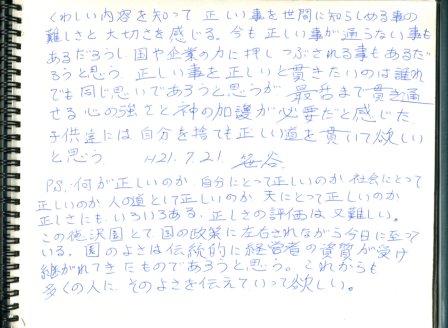 くわしい内容を知って 正しい事を世間に知らしめる事の
難しさと 大切さを感じる。今も 正しい事が通らない事も
あるだろうし 国や企業の力に押しつぶされる事もあるだ
ろうと思う 正しい事を正しいと貫きたいのは誰れ
でも同じ思いであろうと思うが 最后まで貫き通
せる心の強さと 神の加護が必要だと感じた
子供達には 自分を捨ても正しい道を貫いて欲しい
と思う H21.7.21 笹谷
P.S. 何が正しいのか 自分にとって正しいのか 社会にとって
正しいのか 人の道として正しいのか 天にとって正しいのか
正しさにも いろいろある. 正しさの評価は 又難しい。
この徳沢園とて 国の政策に左右されながら今日に至って
いる. 園のよさは 伝統的に経営者の資質が受け
継がれてきたものであろうと思う。これからも
多くの人に そのよさを伝えていって欲しい。